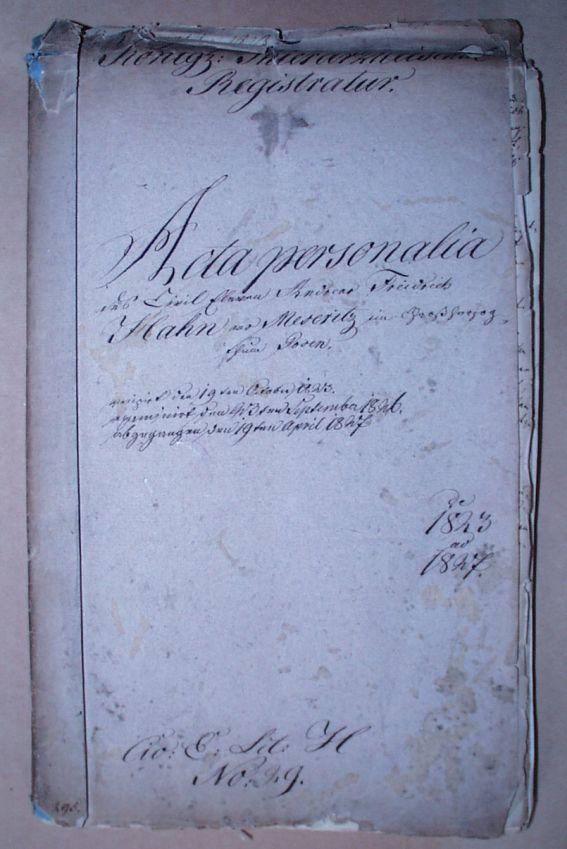 Königl: Thierarznei
Registratur.
Acta personalia
des Civil Eleven Andreas Friedrich
Hahn aus Meseritz im Großherzog
thum Posen.
den 19ten October 1823.
den ten September 1826.
abgegangen den 19ten April 1827
De
1823
ad
1827.
Lit: H
No: 29.
295.